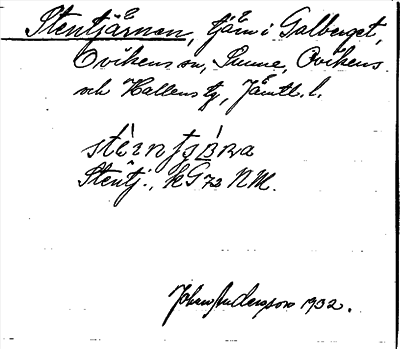 Stentjärnen, tjärn i Galberget,
Ovikens sn, Sunne, Ovikens
och Hallens tg, Jämtl. l.
Stentj., kG 73 NM.
John Anderson 1932.